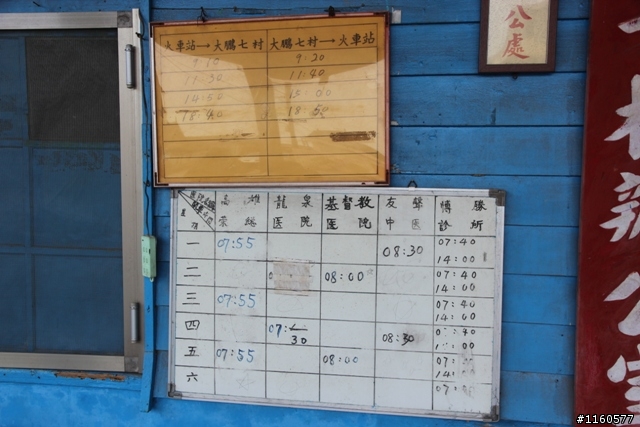 公處
火車站→大鵬七村 大鵬七村→火車站
9:10 9:20
11:30 11:40
14:50 15:00
18:40 18:50
高雄榮總 龍泉醫院 基督教醫院 友聯中医 博勝診所
星期
一 07:55 08:30 07:40 14:00
二 08:00 07:40 14:00
三 07:55 07:40 14:00
四 07:30 08:30
五 07:55 08:00 07: 14:
六 07:
村辦公室
#1160577